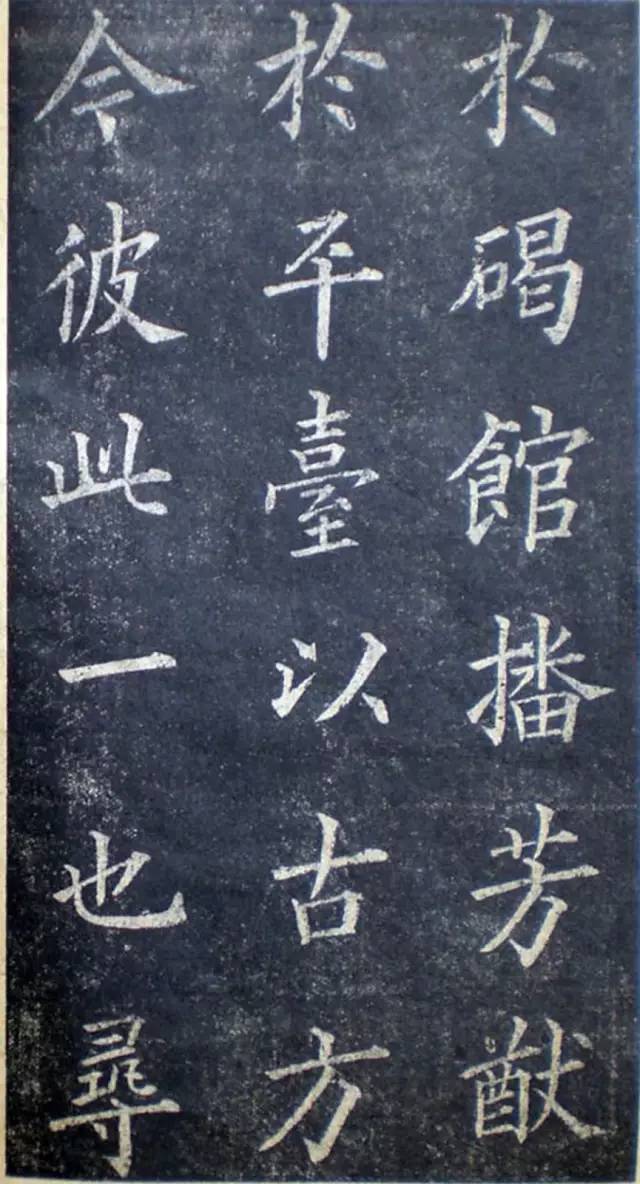 於碣館播芳猷
於平臺以古方
今彼此一也尋